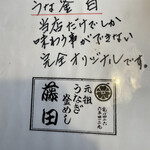 うな釜目
当店だけでしか
味わう事ができない
完全オリジナルです。
元祖
うなぎ
釜めし
藤田